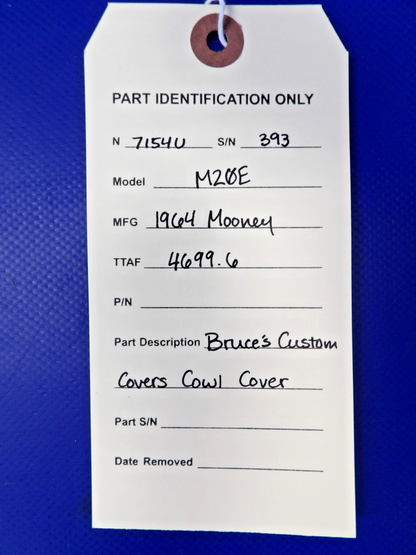 PART IDENTIFICATION ONLY
N 7154U S/N 393
Model M20E
MFG 1964 Mooney
TTAF 4699.6
P/N
Part Description Bruce's Custom
Covers Cowl Cover
Part S/N
Date Removed